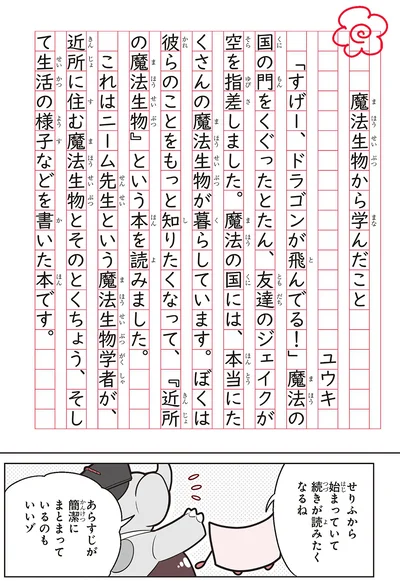 魔法生物から学んだこと
ユウキ
「すげー、ドラゴンが飛んでる！」魔法の
国の門をくぐったとたん、友達のジェイクが
空を指差しました。魔法の国には、本当にた
くさんの魔法生物が暮らしています。ぼくは
彼らのことをもっと知りたくなって、『近所
の魔法生物』という本を読みました。
これはニーム先生という魔法生物学者が、
近所に住む魔法生物とそのとくちょう、そし
て生活の様子などを書いた本です。
せりふから
始まっていて
続きが読みたく
なるね
あらすじが
簡潔に
まとまって
いるのも
いいゾ